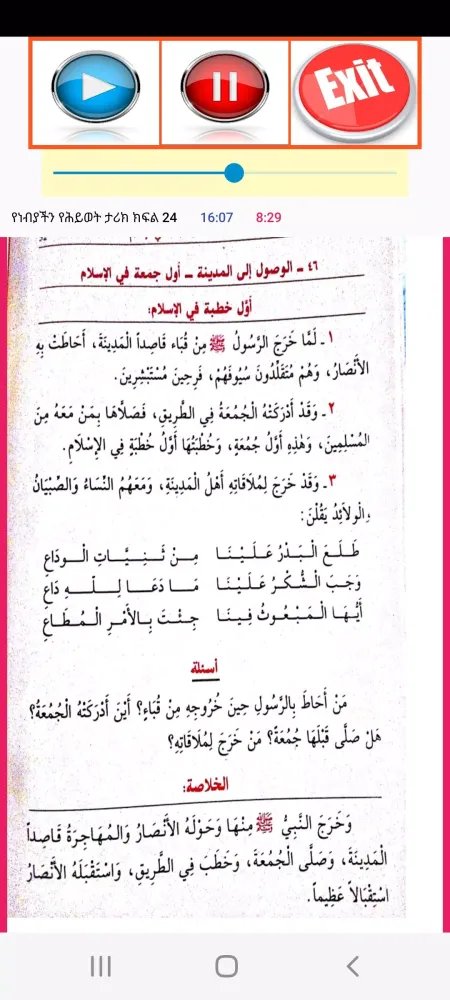 Exit
የነብያችን የሕይወት ታሪክ ክፍል 24 16:07 8:29
٤٦ - الوصول إلى المدينة - أول جمعة في الإسلام
أوَّل خطبة في الإسلام:
١ - لَمَّا خَرَجَ الرَّسُولُ ﷺ مِنْ قُبَاء قَاصِداً الْمَدِينَةَ، أَحَاطَتْ بِهِ
الأَنْصَارُ، وَهُمْ مُتَقَلِّدُونَ سُيُوفَهُمْ، فَرِحِينَ مُسْتَبْشِرِينَ.
٢ - وَقَدْ أَدْرَكَتْهُ الْجُمُعَةُ فِي الطَّرِيقِ، فَصَلاَّهَا بِمَنْ مَعَهُ مِنَ
الْمُسْلِمِينَ، وَهٰذِهِ أَوَّلُ جُمُعَةٍ، وَخُطْبَتُهَا أَوَّلُ خُطْبَةٍ فِي الإِسْلَامِ.
٣ - وَقَدْ خَرَجَ لِمُلَاقَاتِهِ أَهْلُ الْمَدِينَةِ، وَمَعَهُمُ النِّسَاءُ وَالصِّبْيَانُ
وَالْوَلَائِدُ يَقُلْنَ:
طَلَعَ الْبَدْرُ عَلَيْنَا مِنْ ثَنِيَّاتِ الْوَدَاعِ
وَجَبَ الشُّكْرُ عَلَيْنَا مَا دَعَا لِلَّهِ دَاعِ
أَيُّهَا الْمَبْعُوثُ فِينَا جِئْتَ بِالأَمْرِ الْمُطَاعِ
أسئلة
مَنْ أَحَاطَ بِالرَّسُولِ حِينَ خُرُوجِهِ مِنْ قُبَاءٍ؟ أَيْنَ أَدْرَكَتْهُ الْجُمُعَةُ؟
هَلْ صَلَّى قَبْلَهَا جُمُعَةً؟ مَنْ خَرَجَ لِمُلَاقَاتِهِ؟
الخلاصة:
وَخَرَجَ النَّبِيُّ ﷺ مِنْهَا وَحَوْلَهُ الأَنْصَارُ وَالْمُهَاجِرَةُ قَاصِداً
الْمَدِينَةَ، وَصَلَّى الْجُمُعَةَ، وَخَطَبَ فِي الطَّرِيقِ، وَاسْتَقْبَلَهُ الأَنْصَارُ
اسْتِقْبَالاً عَظِيماً.